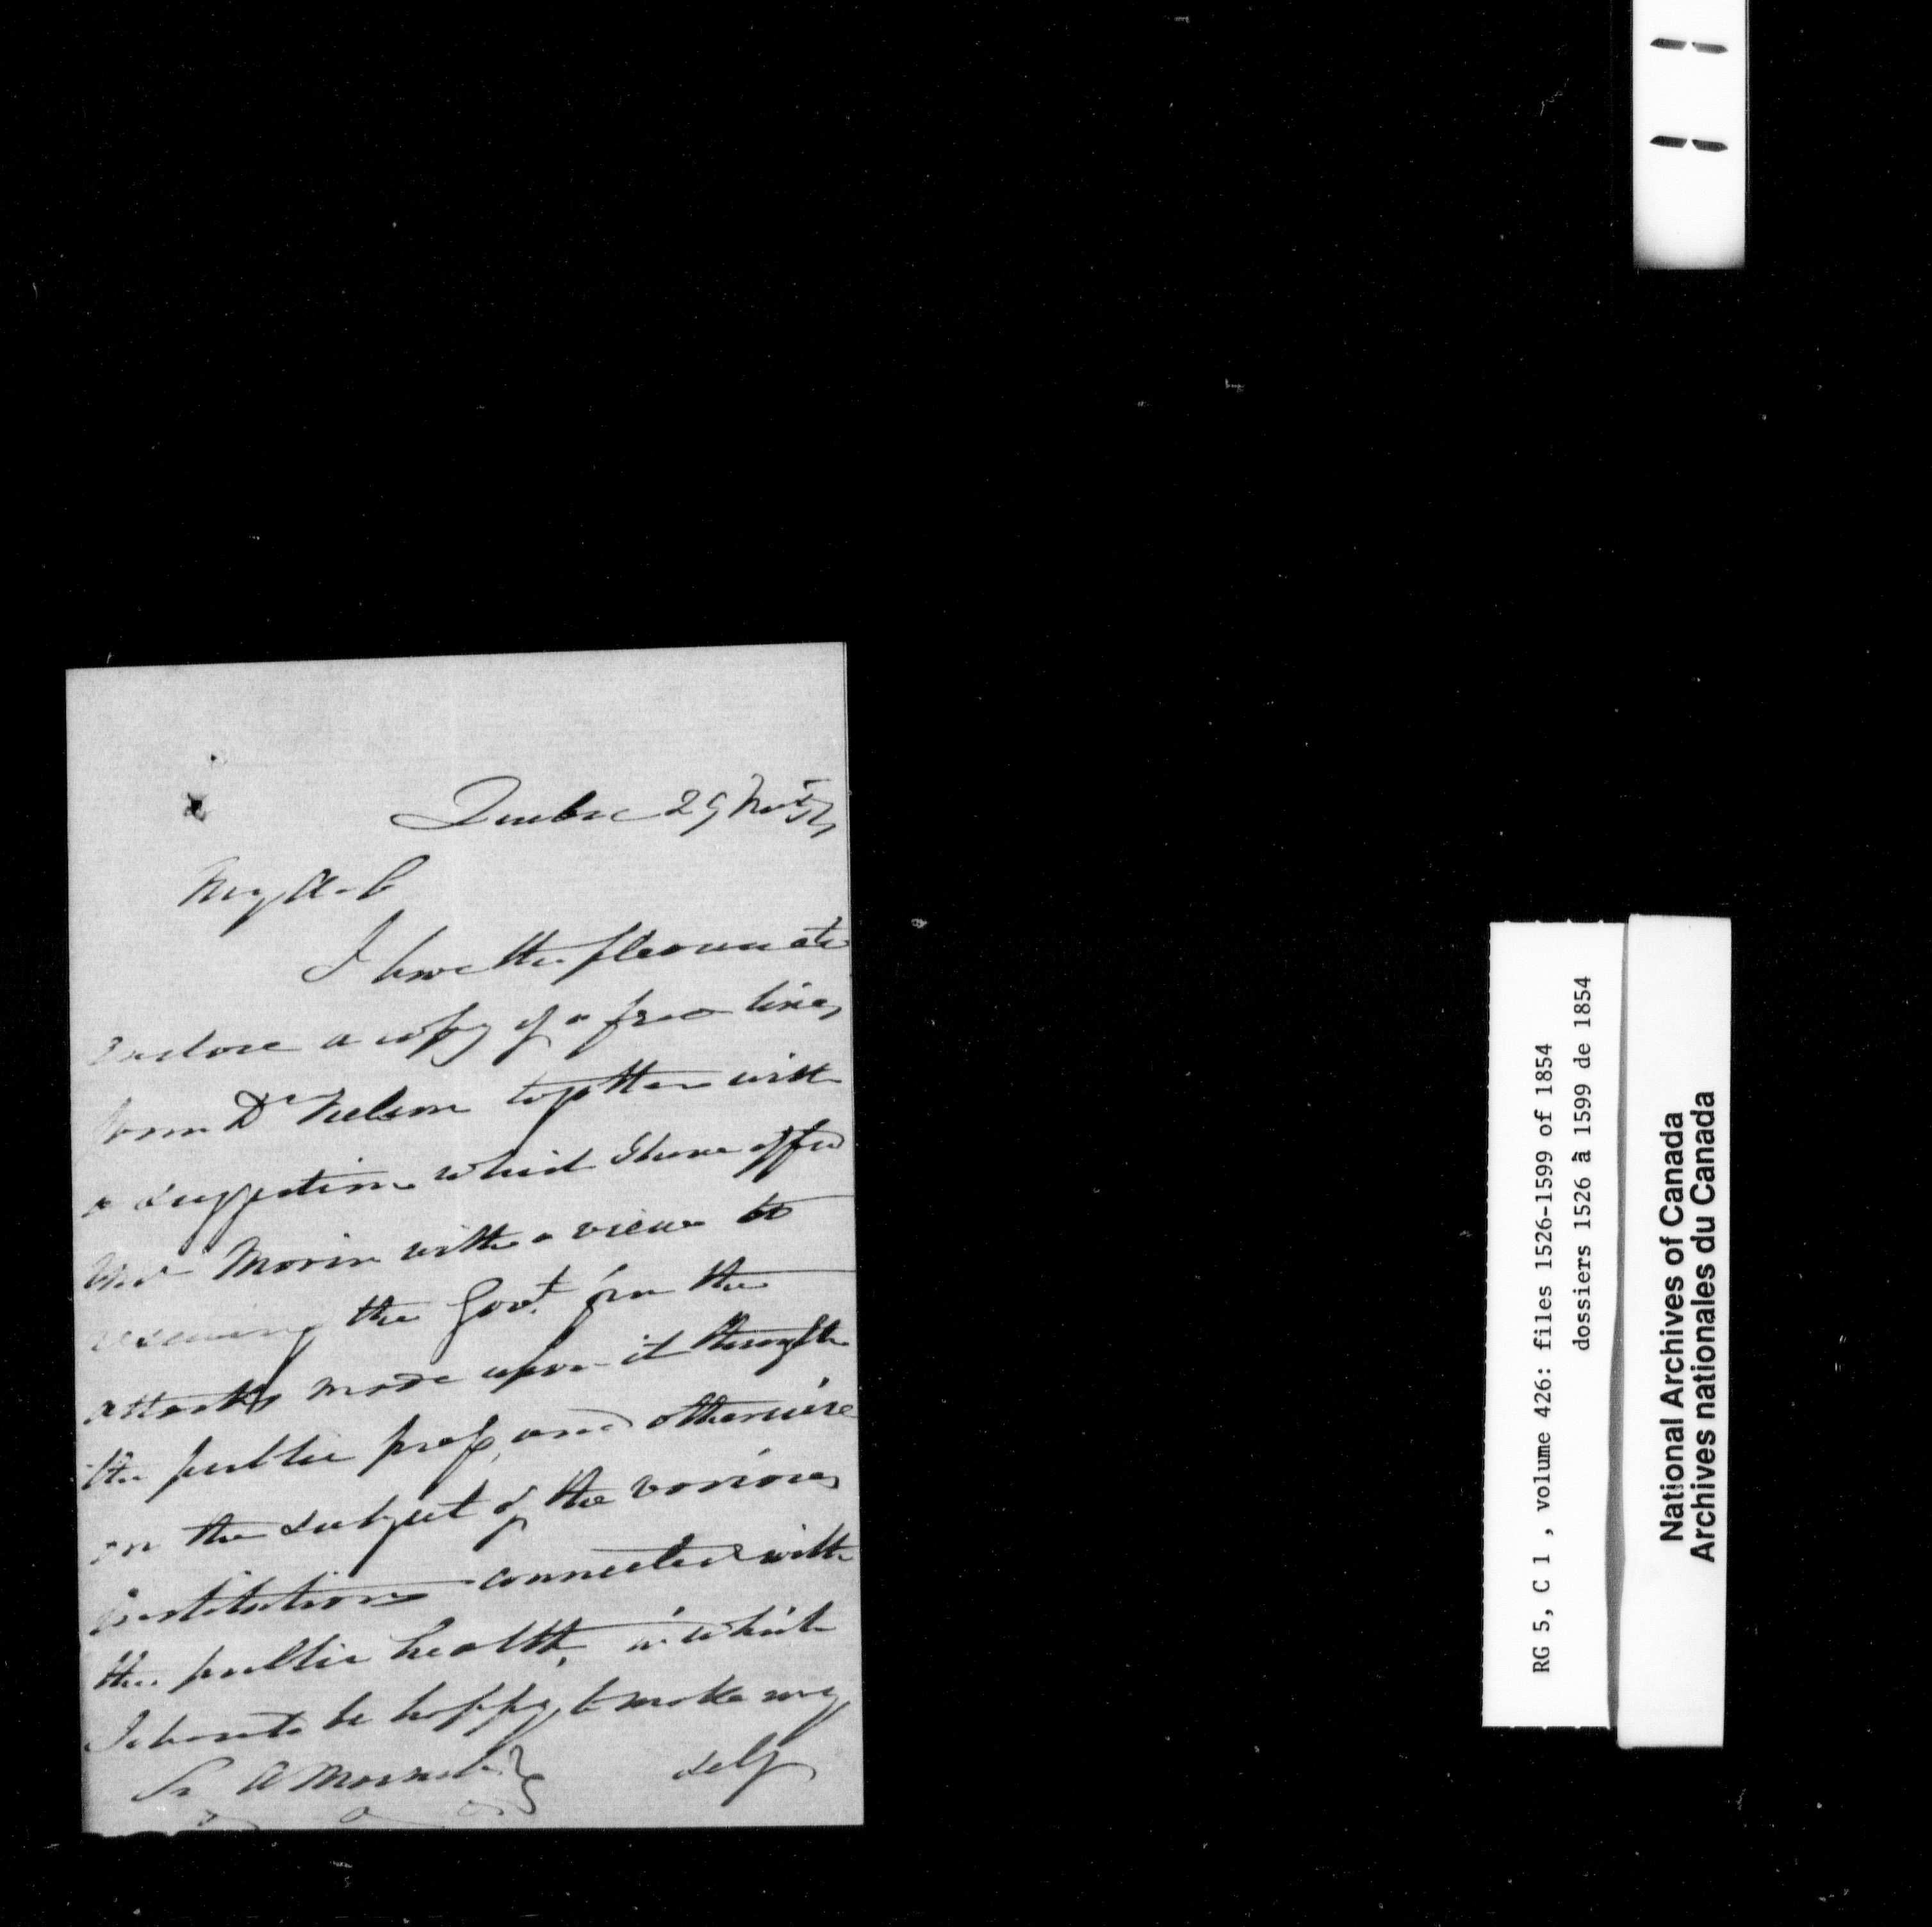 Quebec 29 Nov 54
My
I have the pleasure to
enclose a copy of a few lines
from Dr Nelson together with
a suggestion which I have offered
Mr Morin with a view to
rescuing the Govt from the
attacks made upon it through
the public press, and otherwise
on the subject of the various
institutions connected with
the public health, in which
I shall be happy to make my
self
Sir A
RG 5, C 1 , volume 426: files 1526-1599 of 1854
dossiers 1526 à 1599 de 1854
National Archives of Canada
Archives nationales du Canada